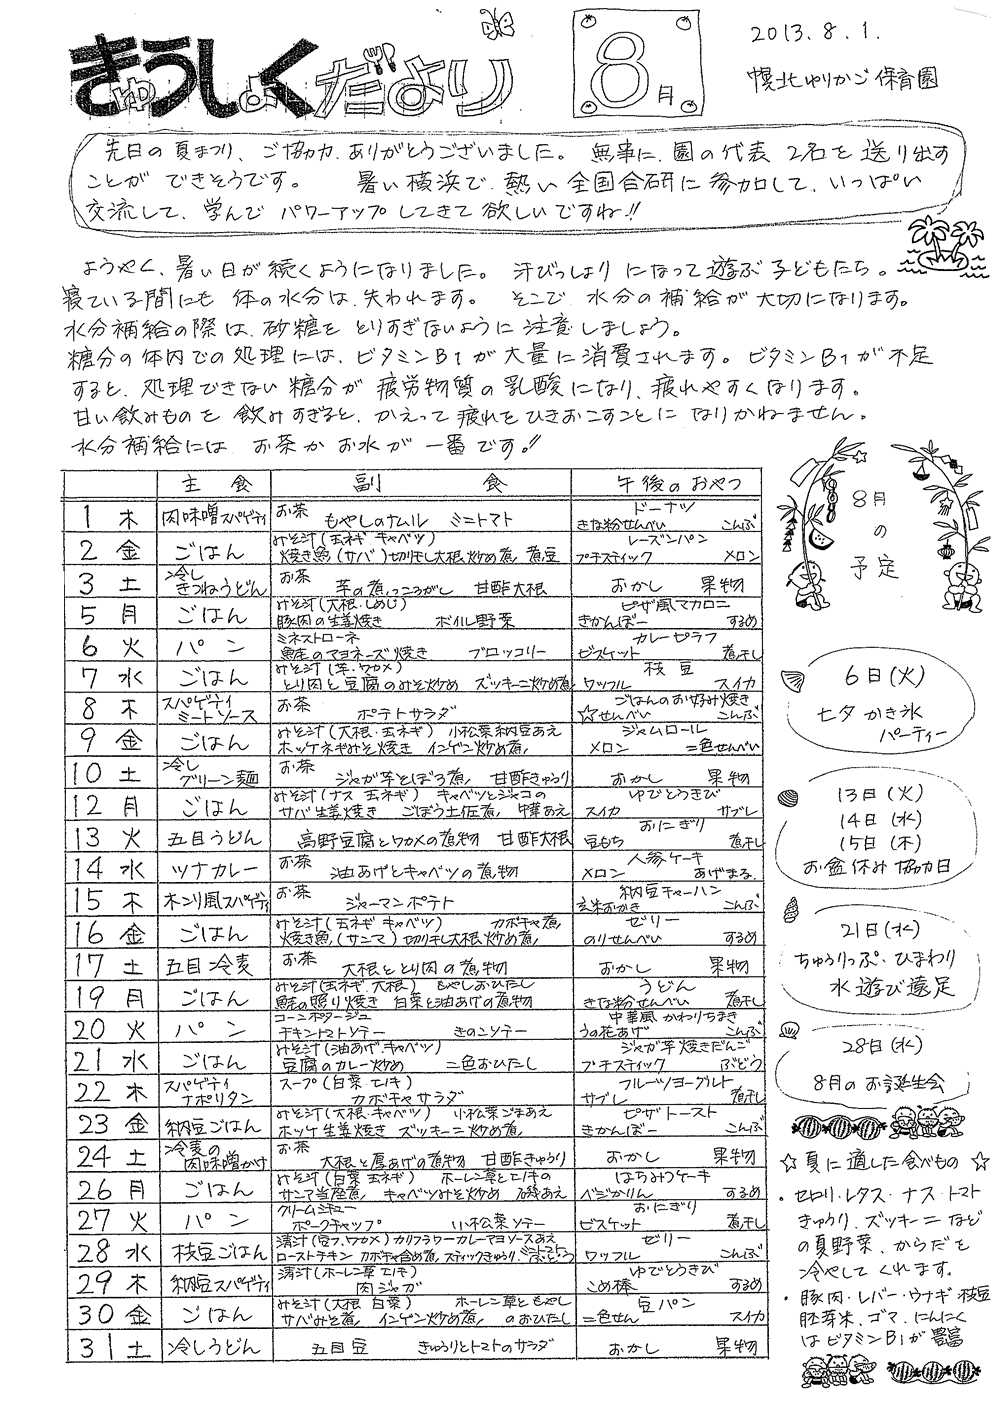 きゅうしょくだより
8月
2013.8.1.
幌北ゆりかご保育園
先日の夏まつり、ご協力、ありがとうございました。無事に、園の代表 2名を送り出す
ことが できそうです。 暑い横浜で、熱い全国合研に参加して、いっぱい
交流して、学んで パワーアップしてきて欲しいですね!!
ようやく、暑い日が続くようになりました。 汗びっしょり になって遊ぶ子どもたち。
寝ている間にも 体の水分は、失われます。 そこで、水分の補給が大切になります。
水分補給の際は、砂糖を とりすぎないように 注意しましょう。
糖分の体内での処理には、ビタミンB1が大量に消費されます。ビタミンB1が不足
すると、処理できない糖分が 疲労物質の乳酸になり、疲れやすくなります。
甘い飲みものを 飲みすぎると、かえって疲れをひきおこすことに なりかねません。
水分補給には お茶か お水が 一番です!!
主食 副食 午後のおやつ
1 木 肉味噌スパゲティ お茶 もやしのナムル ミニトマト ドーナツ きな粉せんべい こんぶ
2 金 ごはん みそ汁(玉ネギ キャベツ) 焼き魚(サバ)切り干し大根炒め煮 煮豆 レーズンパン プチスティック メロン
3 土 冷しきつねうどん お茶 芋の煮っころがし 甘酢大根 おかし 果物
5 月 ごはん みそ汁(大根・しめじ) 豚肉の生姜焼き ボイル野菜 ピザ風マカロニ きかんぼー するめ
6 火 パン ミネストローネ 鮭のマヨネーズ焼き ブロッコリー カレーピラフ ビスケット 煮干し
7 水 ごはん みそ汁(芋・ワカメ) とり肉と豆腐のみそ炒め ズッキーニ炒め煮 枝豆 ワッフル スイカ
8 木 スパゲティミートソース お茶 ポテトサラダ ごはんのお好み焼き ☆せんべい こんぶ
9 金 ごはん みそ汁(大根・玉ネギ) 小松菜納豆あえ ホッケネギみそ焼き インゲン炒め煮 ジャムロール メロン 二色せんべい
10 土 冷しグリーン麺 お茶 ジャガ芋とそぼろ煮 甘酢きゅうり おかし 果物
12 月 ごはん みそ汁(ナス 玉ネギ) キャベツとジャコの中華あえ サバ生姜焼き ごぼう土佐煮 ゆでとうきび スイカ サブレ
13 火 五目うどん 高野豆腐とワカメの煮物 甘酢大根 おにぎり 豆もち 煮干し
14 水 ツナカレー お茶 油あげとキャベツの煮物 人参ケーキ メロン あげまる
15 木 ボンゴレ風スパゲティ お茶 ジャーマンポテト 納豆チャーハン 玄米おかき こんぶ
16 金 ごはん みそ汁(玉ネギ キャベツ) カボチャ煮 焼き魚(サンマ)切り干し大根炒め煮 ゼリー のりせんべい するめ
17 土 五目冷麦 お茶 大根ととり肉の煮物 おかし 果物
19 月 ごはん みそ汁(玉ネギ、大根) もやしおひたし 鮭の照り焼き 白菜と油あげの煮物 うどん きな粉せんべい 煮干し
20 火 パン コーンポタージュ チキントマトソテー きのこソテー 中華風かわりちまき うの花あげ こんぶ
21 水 ごはん みそ汁(油あげ・キャベツ) 豆腐のカレー炒め 二色おひたし ジャガ芋焼きだんご プチスティック ぶどう
22 木 スパゲティナポリタン スープ(白菜 エノキ) カボチャサラダ フルーツヨーグルト サブレ 煮干し
23 金 納豆ごはん みそ汁(大根・キャベツ) 小松菜ごまあえ ホッケ生姜焼き ズッキーニ炒め煮 ピザトースト きかんぼー こんぶ
24 土 冷麦の肉味噌かけ お茶 大根と厚あげの煮物 甘酢きゅうり おかし 果物
26 月 ごはん みそ汁(白菜 玉ネギ) ホーレン草とエノキの磯あえ サンマ当座煮 キャベツみそ炒め はちみつケーキ ベジかりん するめ
27 火 パン クリームシチュー ポークチャップ 小松菜ソテー おにぎり ビスケット 煮干し
28 水 枝豆ごはん 清汁(豆フ、ワカメ) カリフラワーカレーマヨソースあえ ローストチキン カボチャ含め煮 スティックきゅうり ミニトマト ぶどう ゼリー ワッフル こんぶ
29 木 納豆スパゲティ 清汁(ホーレン草 エノキ) 肉ジャガ ゆでとうきび こめ棒 するめ
30 金 ごはん みそ汁(大根 白菜) ホーレン草ともやしのおひたし サバみそ煮 インゲン炒め煮 豆パン 二色せん スイカ
31 土 冷しうどん 五目豆 きゅうりとトマトのサラダ おかし 果物
8月の予定
6日(火)
七夕かき氷
パーティー
13日(火)
14日(水)
15日(木)
お盆休み協力日
21日(水)
ちゅうりっぷ・ひまわり
水遊び遠足
28日(水)
8月のお誕生会
☆夏に適した食べもの☆
・セロリ・レタス・ナス・トマト
きゅうり、ズッキーニなど
の夏野菜、からだを
冷やしてくれます。
・豚肉・レバー・ウナギ・枝豆
胚芽米、ゴマ、にんにく
はビタミンB1が豊富